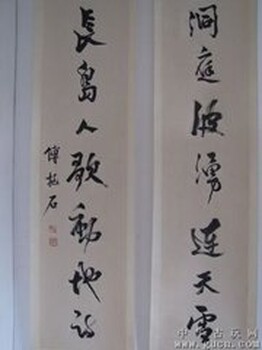 洞庭波湧連天雪
長島人歌動地詩
傅抱石
中国古玩网
www.gucn.com